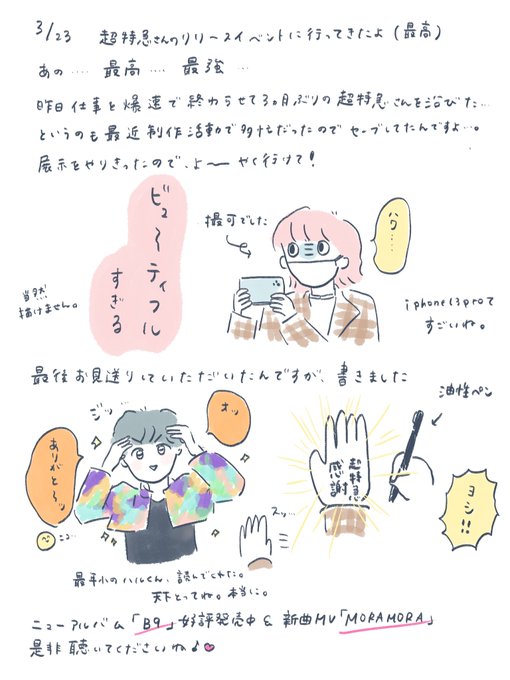 3/23 超特急さんのリリースイベントに行ってきたよ(最高)
あの…… 最高…… 最強…
昨日仕事を爆速で終わらせて3ヵ月ぶりの超特急さんを浴びた…
というのも最近制作活動で多忙だったのでセーブしてたんですよ…。
展示をやりきったので、よ〜やく行けて!
ビューティフルすぎる
撮可でした
ハワ……
当然描けません。
iphone13proてすごいね。
最後お見送りしていただいたんですが、書きました
油性ペン
ジッ
オッ
ありがとうッ
ニコ…
超特急感謝
ヨシ!!
スッ…
最年少のハルくん、読んでくれた。
天下とってね。本当に。
ニューアルバム「B9」好評発売中&新曲MV「MORAMORA」
是非聴いてくださいね♪